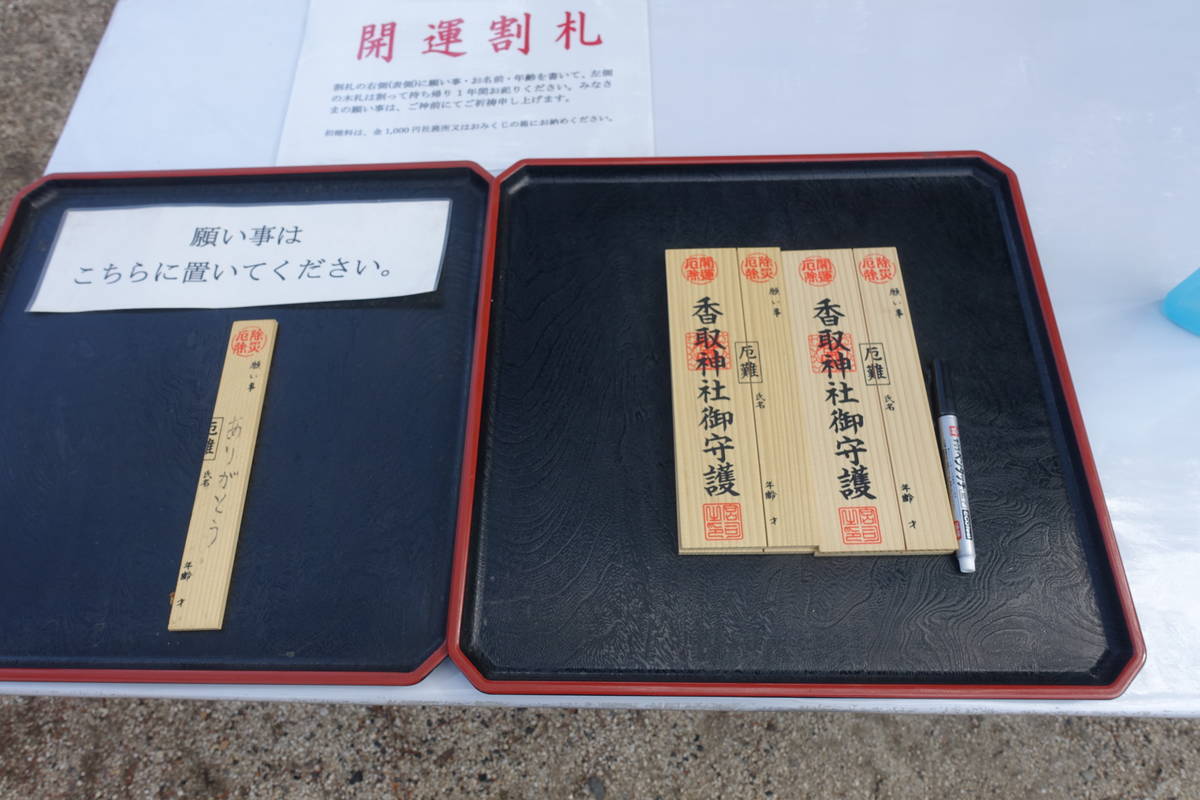 開運割札
割札の右側(表側)に願い事・お名前・年齢を書いて、左側
の木札は割って持ち帰り1年間お祀りください。みなさ
まの願い事は、ご神前にてご祈祷申し上げます。
初穂料は、金1,000円社務所又はおみくじの箱にお納めください。
願い事は
こちらに置いてください。
除災
厄除
願い事
ありがとう
厄難
氏名
年齢
才
開運
厄除
香取神社御守護
宮司
之印
除災
厄除
願い事
厄難
氏名
年齢
才
開運
厄除
香取神社御守護
宮司
之印
除災
厄除
願い事
厄難
氏名
年齢
才